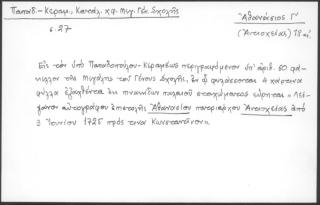 Παπαδ.-Κεραμ., Κατάλ. χφ. Μεγ. Γέν. Σχολῆς
Ἀθανάσιος Γ'
σ. 27
(Ἀντιοχείας) 18 αἰ.
Εἰς τὸν ὑπὸ Παπαδοπούλου-Κεραμέως περιγραφόμενον ὑπ' ἀριθ. 60 φά-
κελλον τῆς Μεγάλης τοῦ Γένους Σχολῆς, ἐν ᾧ φυλάσσονται 4 χάρτινα
φύλλα ἐξαχθέντα ἐκ πινακίδων παλαιοῦ σταχώματος εὕρηται « Λεί-
ψανον αὐτογράφου ἐπιστολῆς Ἀθανασίου πατριάρχου Ἀντιοχείας ἀπὸ
3 Ἰουνίου 1725 πρός τινα Κωνσταντῖνον».